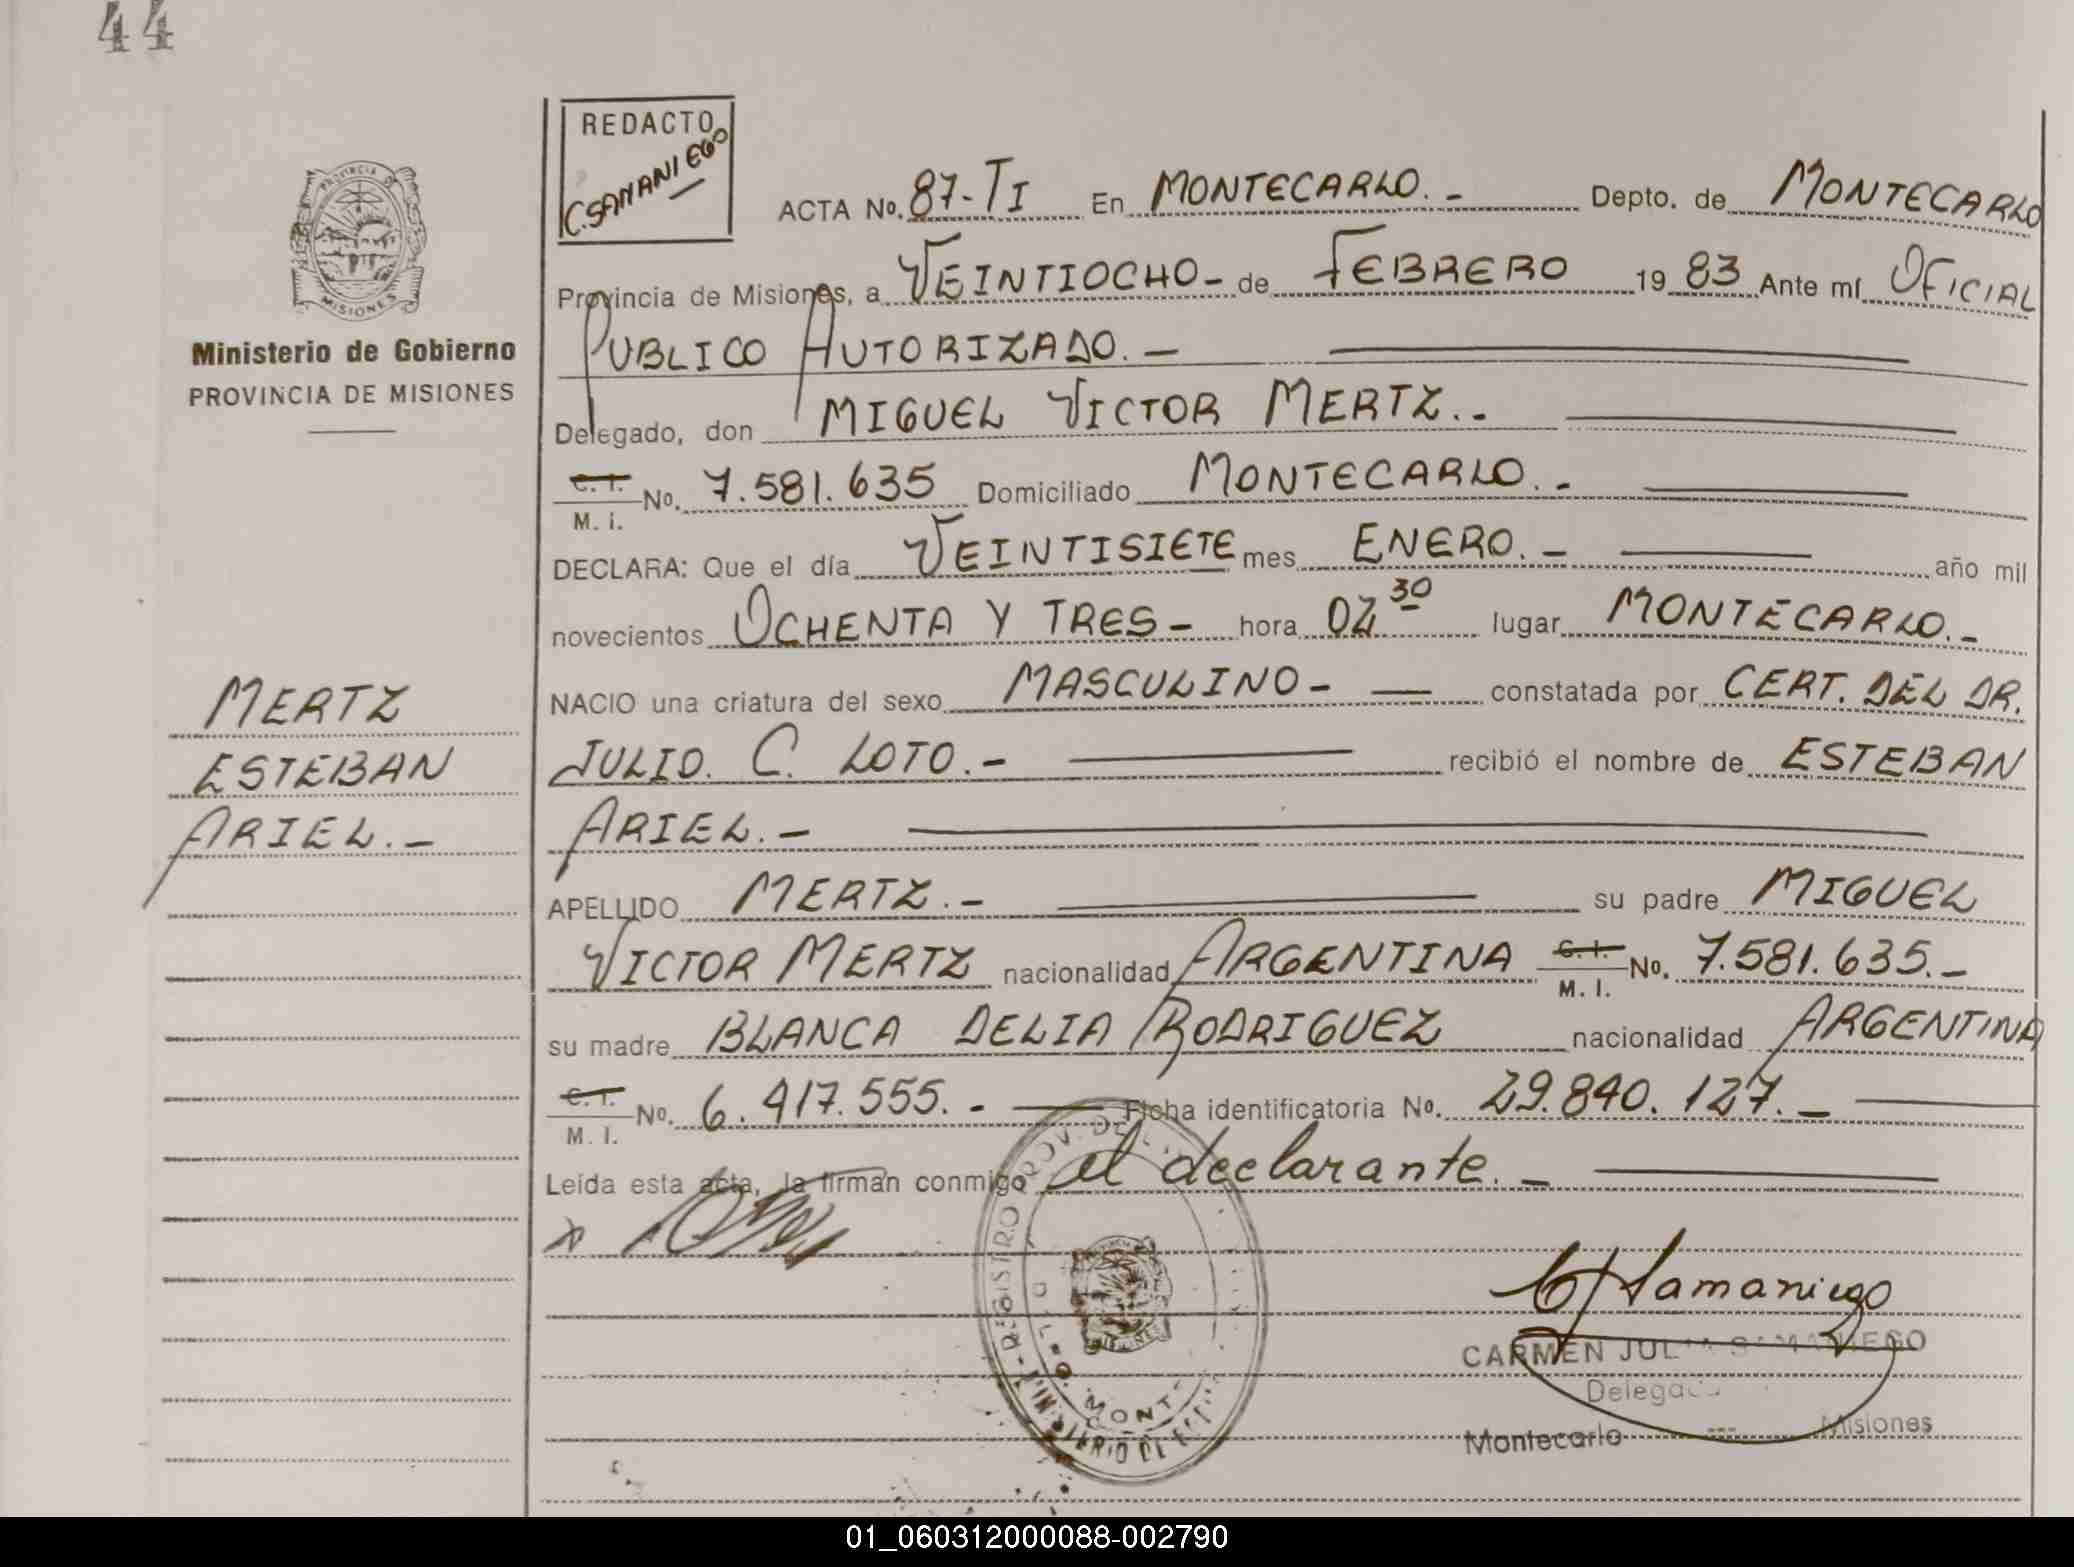 44
REDACTO
C. SAMANIEGO
ACTA No. 87-TI En MONTECARLO.- Depto. de MONTECARLO
Provincia de Misiones, a VEINTIOCHO- de FEBRERO 19 83 Ante mí OFICIAL
PUBLICO AUTORIZADO.-
Delegado, don MIGUEL VICTOR MERTZ.-
C. I. M. I. No. 7.581.635 Domiciliado MONTECARLO.-
DECLARA: Que el día VEINTISIETE mes ENERO.- año mil
novecientos OCHENTA Y TRES- hora 04 30 lugar MONTECARLO.-
NACIO una criatura del sexo MASCULINO- constatada por CERT. DEL DR.
JULIO. C. LOTO.- recibió el nombre de ESTEBAN
ARIEL.-
APELLIDO MERTZ.- su padre MIGUEL
VICTOR MERTZ nacionalidad ARGENTINA C. I. M. I. No. 7.581.635.-
su madre BLANCA DELIA RODRIGUEZ nacionalidad ARGENTINA
C. I. M. I. No. 6.417.555.- Ficha identificatoria No. 29.840.127.-
Leída esta acta, la firman conmigo el declarante.-
PROVINCIA DE MISIONES
Ministerio de Gobierno
PROVINCIA DE MISIONES
MERTZ
ESTEBAN
ARIEL.-
REGISTRO PROV. DE L
MONT
MINISTERIO DE
Samaniego
CARMEN JULIA SAMANIEGO
Delegada
Montecarlo --- Misiones
01_060312000088-002790